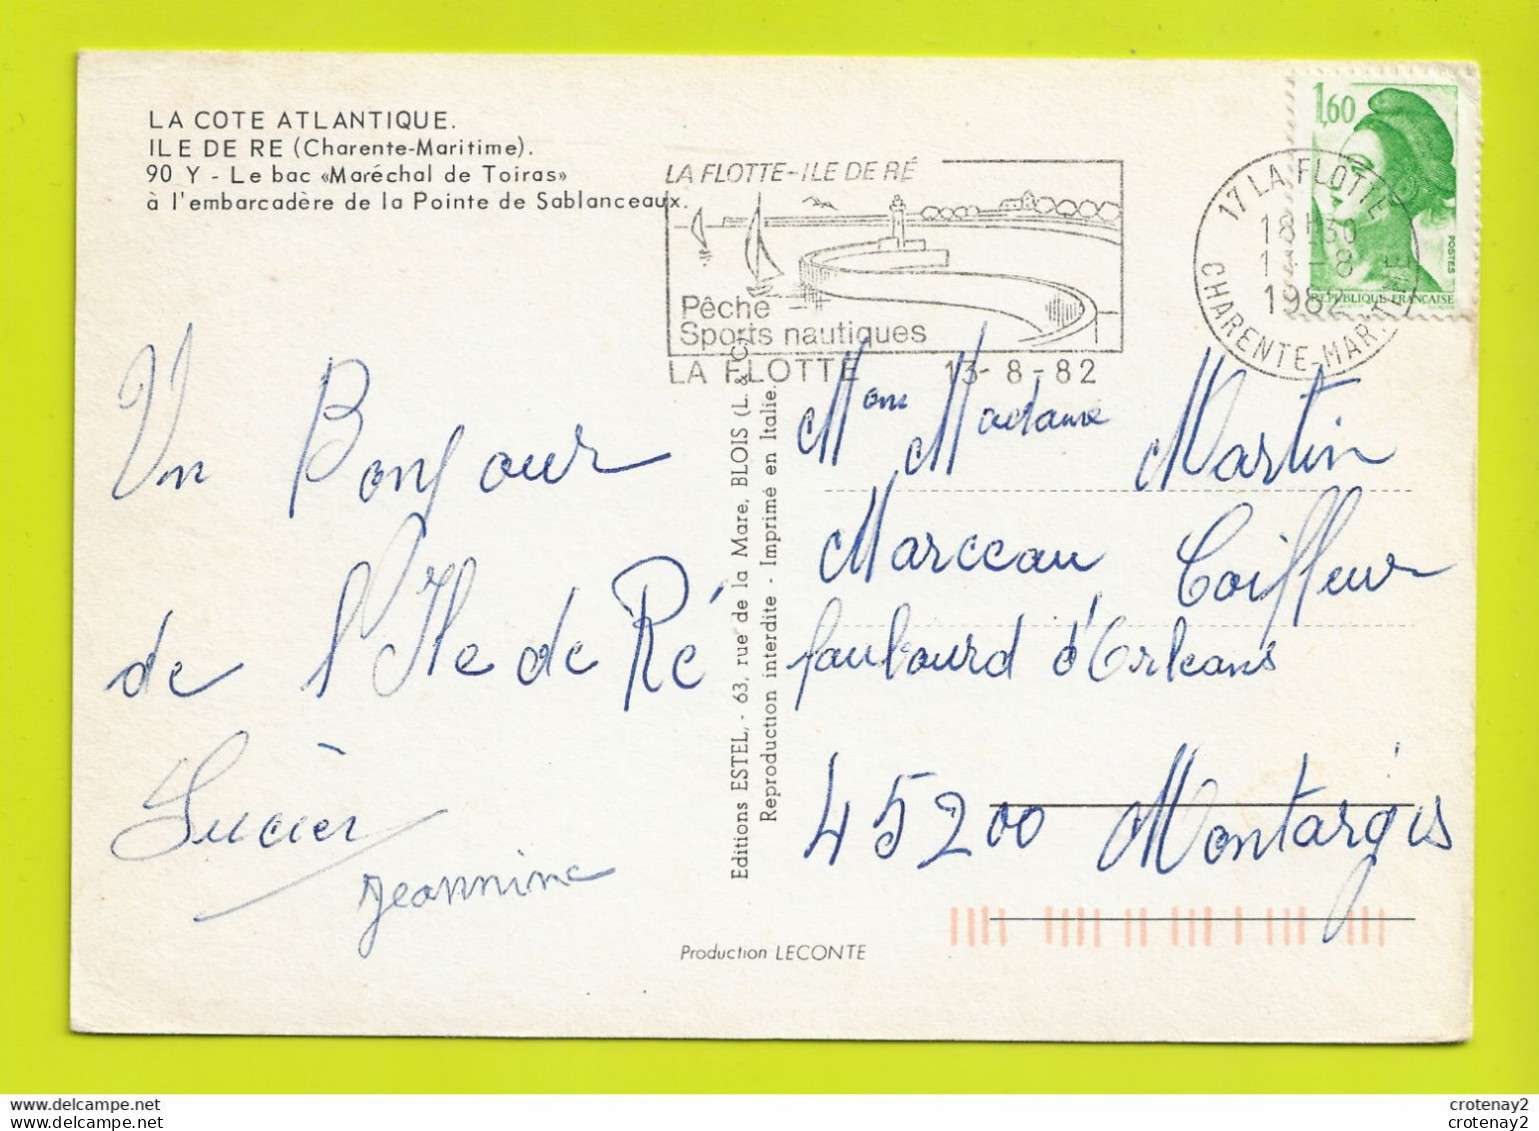 LA COTE ATLANTIQUE.
ILE DE RE (Charente-Maritime).
90 Y - Le bac «Maréchal de Toiras»
à l'embarcadère de la Pointe de Sablanceaux.
LA FLOTTE-ILE DE RÉ
Pêche
Sports nautiques
LA FLOTTE 13-8-82
17 LA FLOTTE
18H30
13-8
1982
CHARENTE-MARITIME
1,60
POSTES
REPUBLIQUE FRANÇAISE
Un Bonjour
de l'Ile de Ré
Jeannine
Editions ESTEL, - 63, rue de la Mare, BLOIS (L. & C)
Reproduction interdite - Imprimé en Italie.
Madame Martin
Marceau Coiffeur
faubourd d'Orleans
45200 Montargis
Production LECONTE
crotenay2
crotenay2